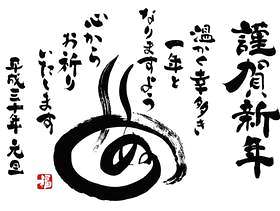 謹賀新年
温かく幸多き
一年と
なりますよう
心から
お祈り
いたします
平成三十年 元旦
ぬ
福